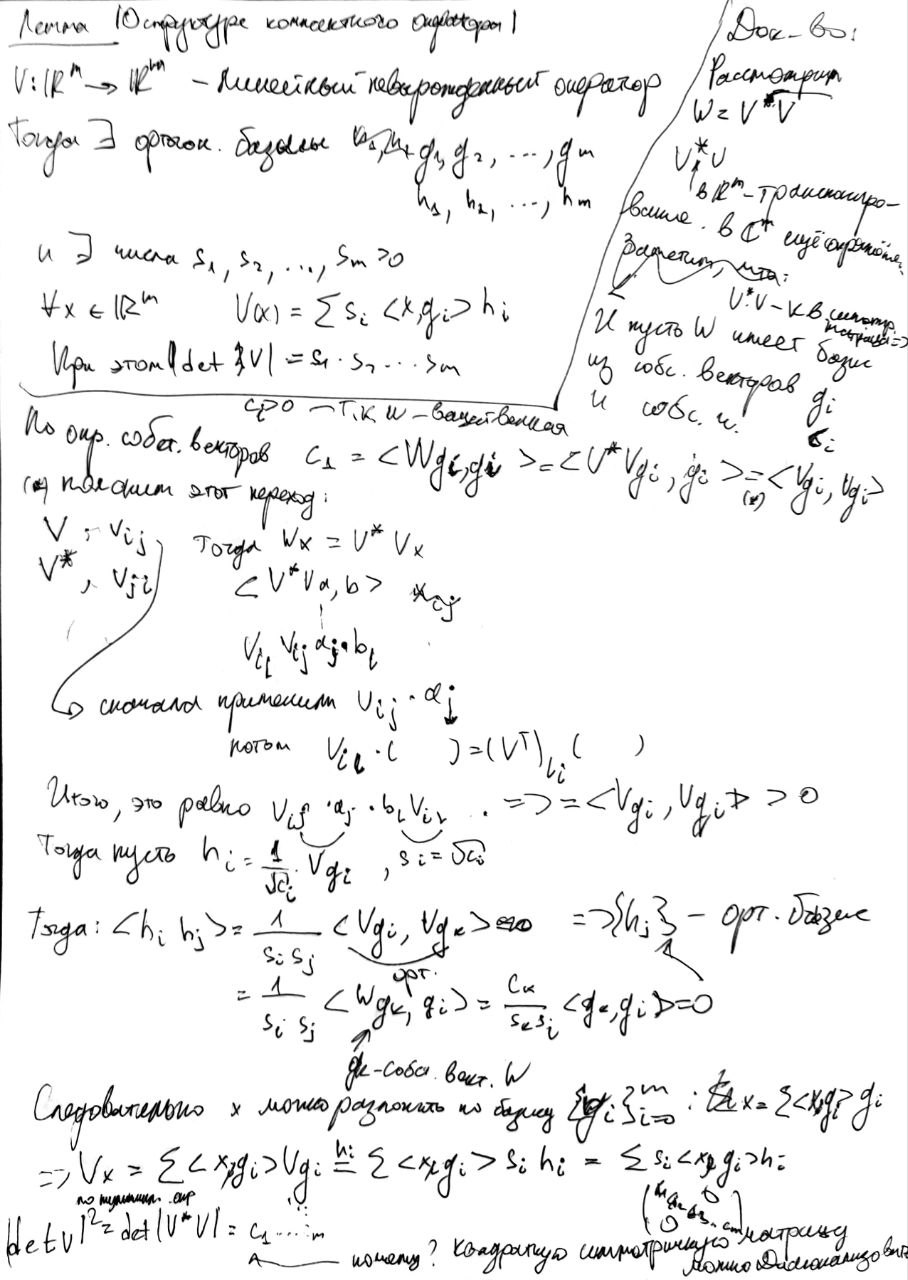 Лемма |О структуре компактного оператора|
V: ℝᵐ → ℝᵐ – Линейный невырожденный оператор
Тогда ∃ ортон. базисы g₁, g₂, ..., gₘ
h₁, h₂, ..., hₘ
и ∃ числа s₁, s₂, ..., sₘ > 0
∀x ∈ ℝᵐ V(x) = Σ sᵢ <x, gᵢ> hᵢ
При этом |det V| = s₁ · s₂ ... sₘ
Док-во:
Рассмотрим
W = V*V
V*V
в ℝᵐ – транспониро-
вание. в ℂ* ещё
Заметим, что:
V*V – кв. симметр. матрица =>
И пусть W имеет базис
из собс. векторов gᵢ
и собс. ч. cᵢ
cᵢ>0 – т.к W – вещественная
По опр. собст. векторов c₁ = <Wgᵢ, gᵢ> = <V*Vgᵢ, gᵢ> =(*) <Vgᵢ, Vgᵢ>
(*) поясним этот переход:
V, vᵢⱼ Тогда Wx = V*Vx
V*, vⱼᵢ <V*Va, b>
Vᵢₗ Vᵢⱼ aⱼ·bₗ
сначала применили Vᵢⱼ · aⱼ
потом Vᵢₗ · ( ) = (Vᵀ)ₗᵢ ( )
Итого, это равно Vᵢⱼ · aⱼ · bₗ Vᵢₗ . => = <Vgᵢ, Vgᵢ> > 0
Тогда пусть hᵢ = 1/√cᵢ · Vgᵢ, sᵢ = √cᵢ
Тогда: <hᵢ hⱼ> = 1/(sᵢ sⱼ) <Vgᵢ, Vgₖ> => {hⱼ} – орт. базис
орт.
= 1/(sᵢ sⱼ) <Wgₖ, gᵢ> = cₖ/(sₖsᵢ) <gₖ, gᵢ> = 0
gₖ – собс. вект. W
Следовательно x можно разложить по базису {gᵢ}ᵐᵢ₌₀ : x = Σ<x, gᵢ> gᵢ
=> Vx = Σ<x, gᵢ> Vgᵢ =(hᵢ) Σ<x, gᵢ> sᵢ hᵢ = Σ sᵢ <x, gᵢ> hᵢ
|det V|² = det|V*V| = c₁ ... ₘ
почему? квадратную симметрическую матрицу
можно диагонализовать